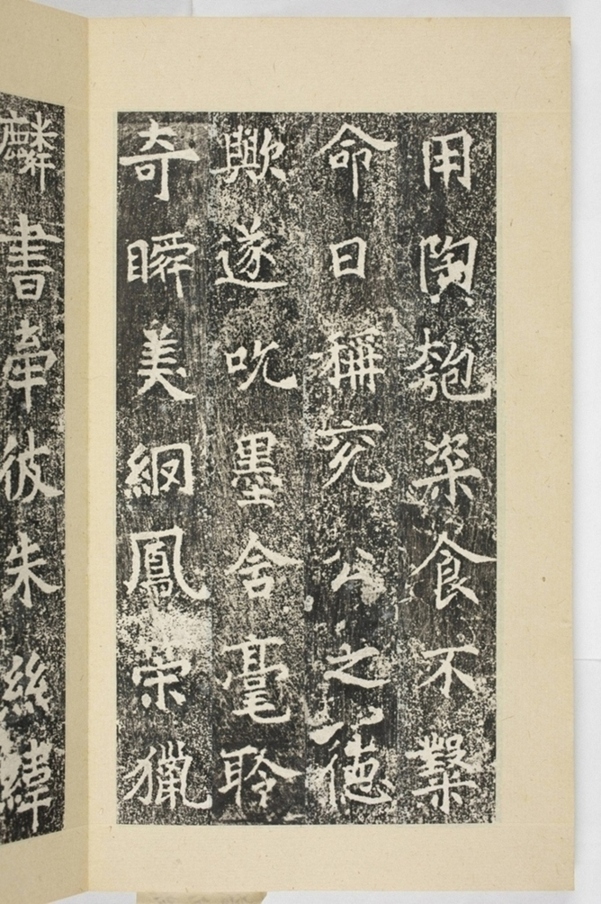 用陶匏粢食不糳
命曰稱兖公之德
歟遂吮墨含毫聆
奇瞬美網鳳策獵
麟書牽彼朱絲緯